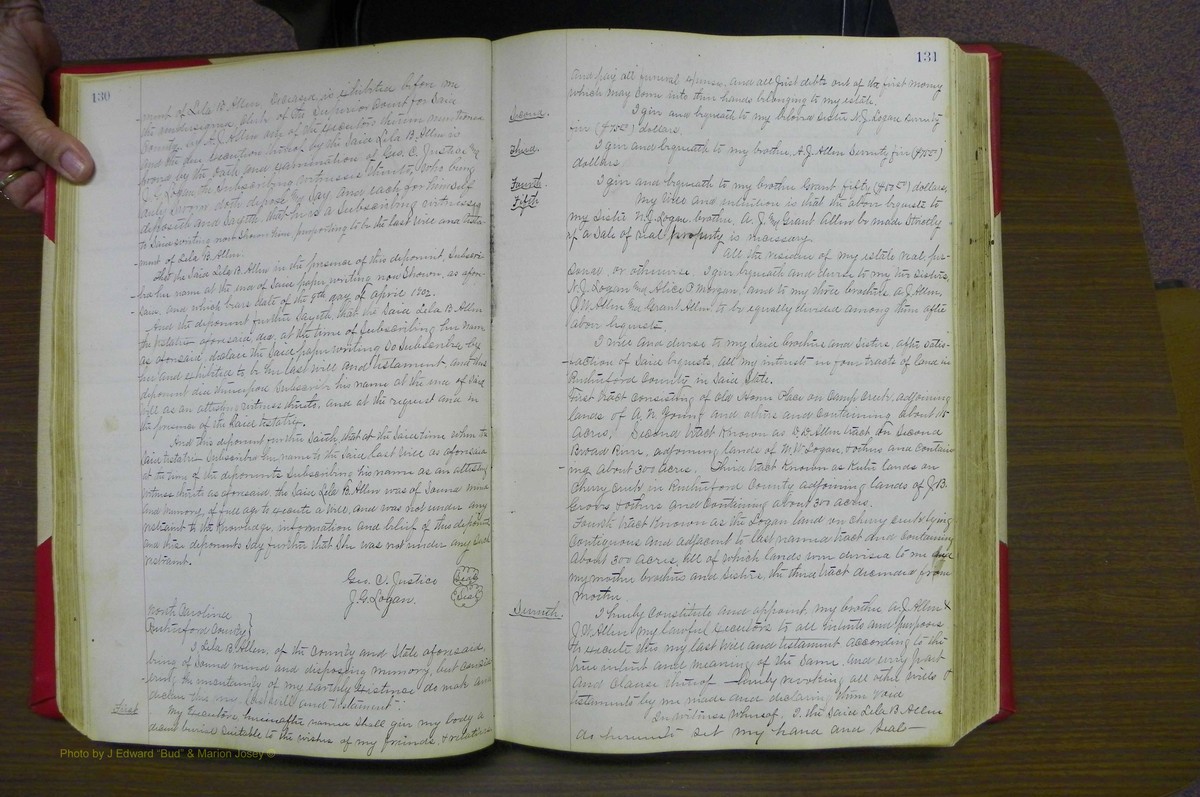 130
ment of Lela B Allen, Deceased, is exhibited before me
the undersigned, Clerk of the Superior Court for said
County, by A. J. Allen one of the executors therein mentioned
and the due execution thereof by the said Lela B. Allen is
proven by the oath and examination of Geo. C. Justice and
J. G. Logan, the subscribing witnesses thereto, who being
duly sworn, doth depose and say, and each for himself
deposeth and sayeth, that he is a subscribing witness
to said writing now shown him, purporting to be the last will and testa-
ment of Lela B. Allen.
That the said Lela B. Allen in the presence of this deponent, subscri-
bed her name at the end of said paper writing now shown, as afore-
said, and which bears date of the 9th day of April 1902.
And the deponent further sayeth, that the said Lela B. Allen
the testatrix aforesaid, did, at the time of subscribing her name
as aforesaid, declare the said paper writing so subscribed by
her and exhibited to be her last will and testament, and this
deponent did thereupon subscribe his name at the end of said
will as an attesting witness thereto, and at the request and in
the presence of the said testatrix.
And this deponent further saith that at the said time when the
said testatrix subscribed her name to the said last will as aforesaid
at the time of the deponents subscribing his name as an attesting
witness thereto as aforesaid, the said Lela B. Allen was of sound mind
and memory, of full age to execute a will, and was not under any
restraint to the knowledge, information and belief of this deponent
and these deponents say further that she was not under any such
restraint.
Geo. C. Justice (Seal)
J. G. Logan. (Seal)
North Carolina
Rutherford County }
I, Lela B. Allen, of the County and State aforesaid,
being of sound mind and disposing memory, but consid-
ering the uncertainty of my earthly existence do make and
declare this my last will and testament:
First My Executors hereinafter named shall give my body a
decent burial suitable to the wishes of my friends, & relatives
131
and pay all funeral expenses, and all just debts out of the first money
which may come into their hands belonging to my estate.
Second. I give and bequeath to my beloved sister N. J. Logan seventy
five ($75.00) dollars.
Third. I give and bequeath to my brother, A. J. Allen seventy five ($75.00)
dollars
Fourth I give and bequeath to my brother Grant fifty ($50.00) dollars.
Fifth My will and intention is that the above bequests to
my sister N. J. Logan, brother, A. J. and Grant Allen be made
if a sale of real property is necessary.
All the residue of my estate real, per-
sonal, or otherwise, I give bequeath and devise to my two sisters
N. J. Logan and Alice P. Morgan, and to my three brothers A. J. Allen,
J. W. Allen and Grant Allen, to be equally divided among them after
above bequests.
I will and devise to my said brothers and sisters, after satis-
faction of said bequests, all my interests in four tracts of land in
Rutherford County in said State.
First tract consisting of Old Home Place on Camp Creek, adjoining
lands of A. N. Young and others and containing about
acres. Second tract known as Allen tract on Second
Broad River, adjoining lands of W. W. Logan, & others and contain-
ing about 300 acres. Third tract known as lands on
Cherry Creek in Rutherford County adjoining lands of J. B.
& others and containing about 300 acres.
Fourth tract known as the Logan land on Cherry Creek lying
contiguous and adjacent to last named tract and containing
about 300 acres, all of which lands were devised to me and
my mother brothers and sisters, the third tract from
Mother.
Seventh. I hereby constitute and appoint my brother A. J. Allen &
J. W. Allen my lawful executors to all intents and purposes
to execute this my last will and testament according to the
true intent and meaning of the same, and every part
and clause thereof — hereby revoking all other wills &
testaments by me made and declaring them void
In witness whereof, I, the said Lela B. Allen
do hereunto set my hand and seal—
Photo by J Edward "Bud" & Marion Josey ©